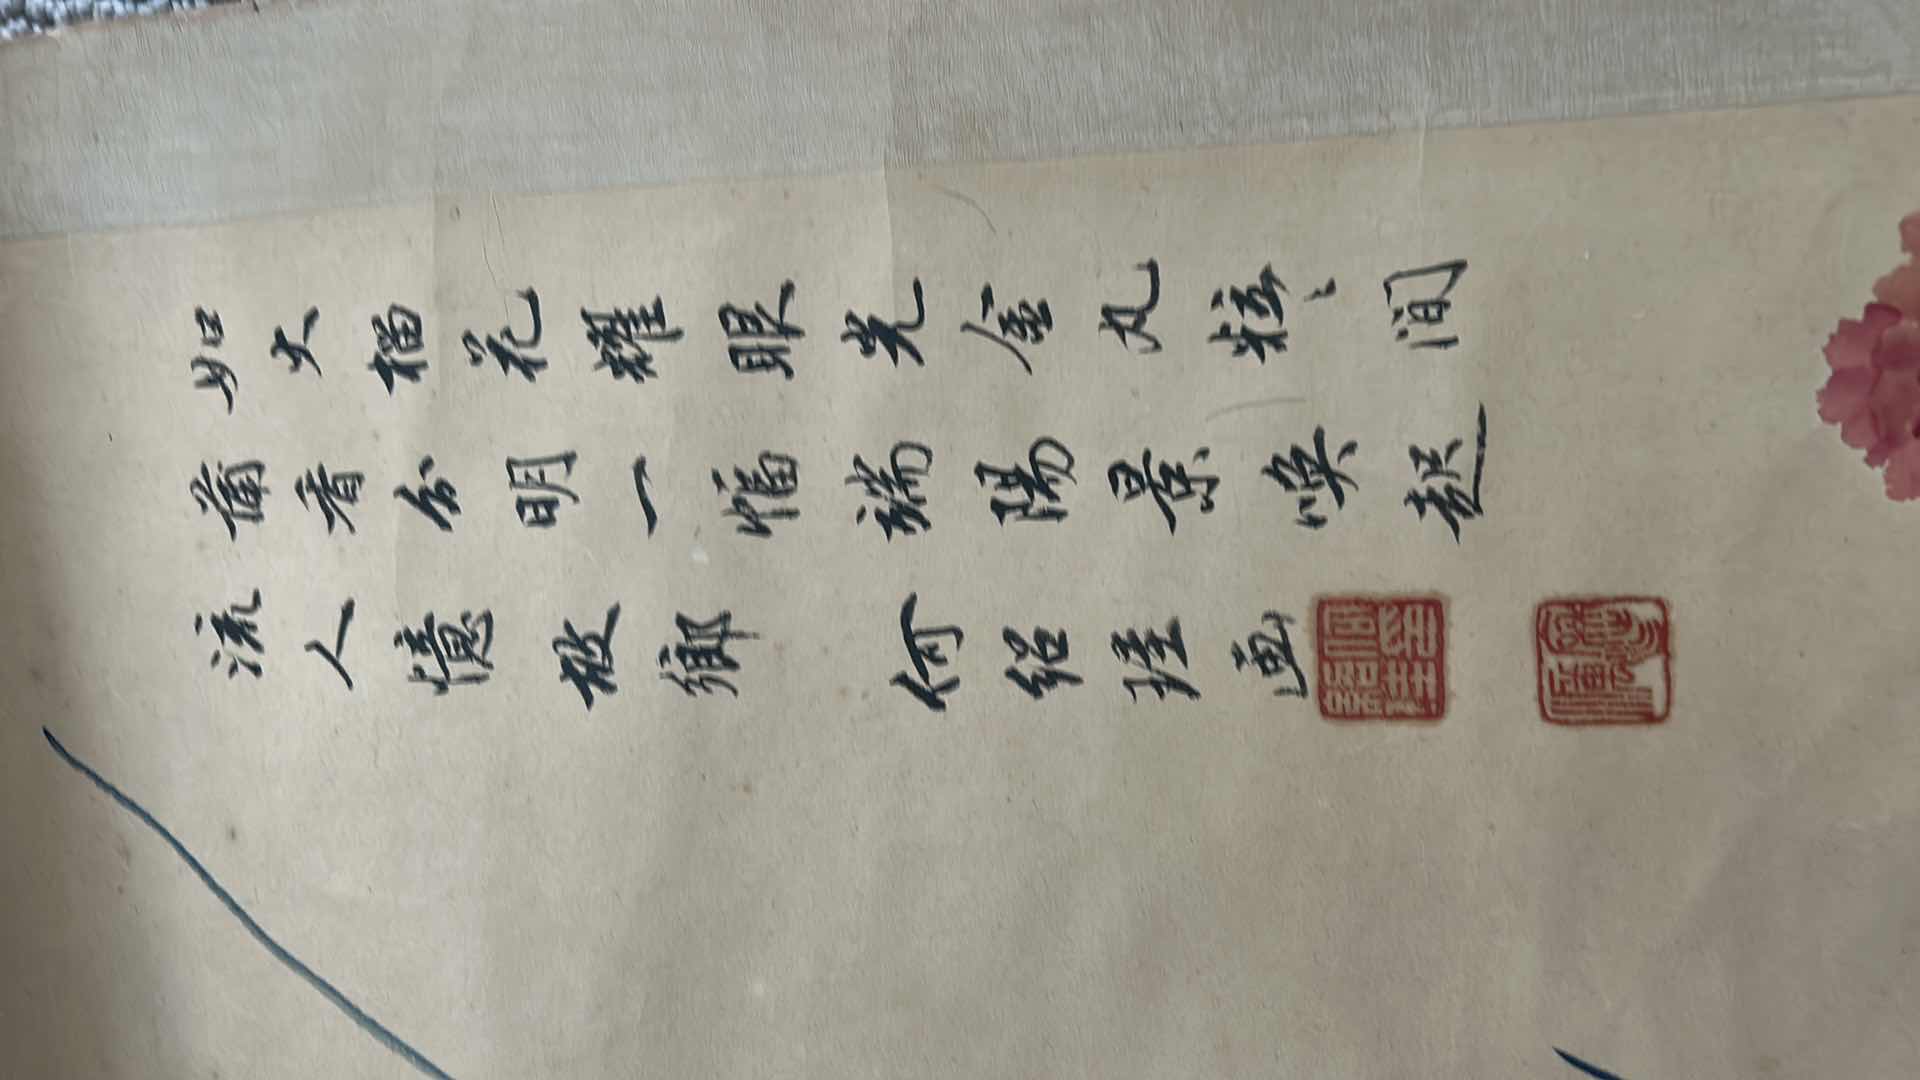 如火榴花耀眼光金丸粒〻間
蒲香分明一幅端陽景喚起
流人憶故鄉 何紹珪画
何紹
印